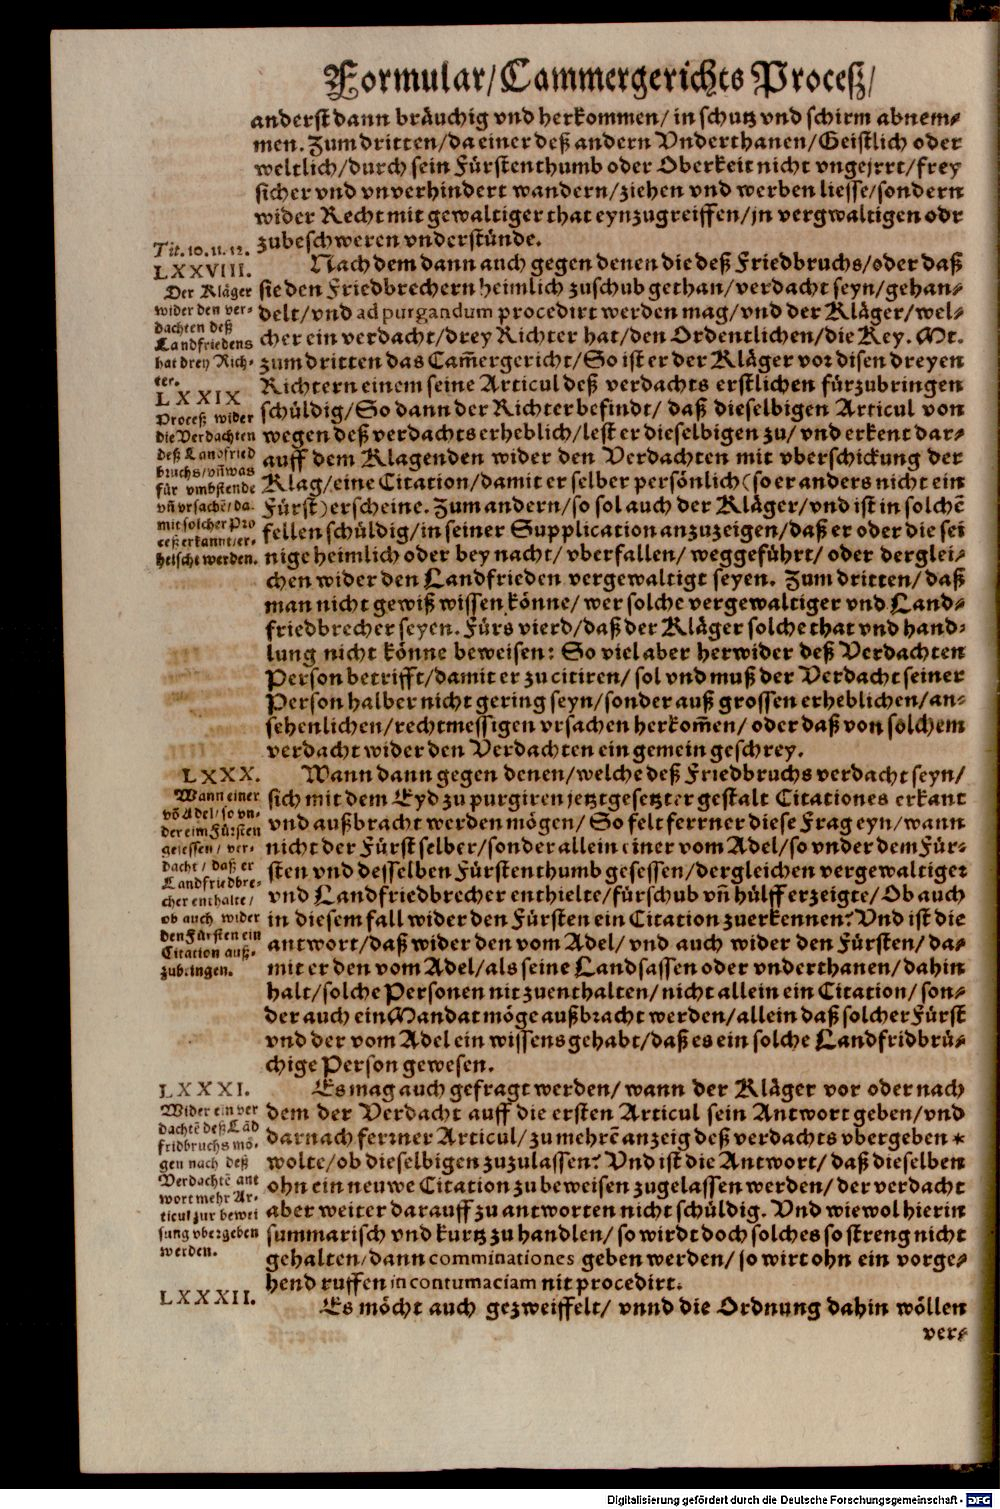 Formular/Cammergerichts Proceß/
anderst dann bräuchig vnd herkommen/ in schutz vnd schirm abnem⸗
men. Zum dritten/ da einer deß andern Vnderthanen/ Geistlich oder
weltlich/ durch sein Fürstenthumb oder Oberkeit nicht vngejrrt/ frey
sicher vnd vnverhindert wandern/ ziehen vnd werben liesse/ sondern
wider Recht mit gewaltiger that eynzugreiffen/ jn vergwaltigen odr
zubeschweren vnderstünde.
Tit. 10. 11. 12.
LXXVIII.
Der Kläger
wider den ver⸗
dachten deß
Landfriedens
hat drey Rich⸗
ter.
Nach dem dann auch gegen denen die deß Friedbruchs/ oder daß
sie den Friedbrechern heimlich zuschub gethan/ verdacht seyn/ gehan⸗
delt/ vnd ad purgandum procedirt werden mag/ vnd der Kläger/ wel⸗
cher ein verdacht/ drey Richter hat/ den Ordentlichen/ die Key. Mt.
zum dritten das Cam̃ergericht/ So ist er der Kläger vor disen dreyen
Richtern einem seine Articul deß verdachts erstlichen fürzubringen
schüldig/ So dann der Richter befindt/ daß dieselbigen Articul von
wegen deß verdachts erheblich/ lest er dieselbigen zu/ vnd erkent dar⸗
auff dem Klagenden wider den Verdachten mit vberschickung der
Klag/ eine Citation/ damit er selber persönlich (so er anders nicht ein
Fürst) erscheine. Zum andern/ so sol auch der Kläger/ vnd ist in solchẽ
fellen schüldig/ in seiner Supplication anzuzeigen/ daß er oder die sei
nige heimlich oder bey nacht/ vberfallen/ weggeführt/ oder derglei⸗
chen wider den Landfrieden vergewaltigt seyen. Zum dritten/ daß
man nicht gewiß wissen könne/ wer solche vergewaltiger vnd Land⸗
friedbrecher seyen. Fürs vierd/ daß der Kläger solche that vnd hand⸗
lung nicht könne beweisen: So viel aber herwider deß Verdachten
Person betrifft/ damit er zu citiren/ sol vnd muß der Verdacht seiner
Person halber nicht gering seyn/ sonder auß grossen erheblichen/ an⸗
sehenlichen/ rechtmessigen vrsachen herkom̃en/ oder daß von solchem
verdacht wider den Verdachten ein gemein geschrey.
LXXIX
Proceß wider
die Verdachten
deß Landfried
bruchs/ vñ was
für vmbstende
vñ vrsachẽ/ da⸗
mit solcher Pro
ceß erkannt/ er⸗
heischt werden.
LXXX.
Wann einer
võ Adel/ so vn⸗
der eim Fürsten
gesessen/ ver⸗
dacht/ daß er
Landfriedbre⸗
cher enthalte/
ob auch wider
den Fürsten ein
Citation auß⸗
zubringen.
Wann dann gegen denen/ welche deß Friedbruchs verdacht seyn/
sich mit dem Eyd zu purgiren jetztgesetzter gestalt Citationes erkant
vnd außbracht werden mögen/ So felt ferrner diese Frag eyn/ wann
nicht der Fürst selber/ sonder allein einer vom Adel/ so vnder dem Für⸗
sten vnd desselben Fürstenthumb gesessen/ dergleichen vergewaltiger
vnd Landfriedbrecher enthielte/ fürschub vñ hülff erzeigte/ Ob auch
in diesem fall wider den Fürsten ein Citation zuerkennen? Vnd ist die
antwort/ daß wider den vom Adel/ vnd auch wider den Fürsten/ da⸗
mit er den vom Adel/ als seine Landsassen oder vnderthanen/ dahin
halt/ solche Personen nit zuenthalten/ nicht allein ein Citation/ son⸗
der auch ein Mandat möge außbracht werden/ allein daß solcher Fürst
vnd der vom Adel ein wissens gehabt/ daß es ein solche Landfridbrü⸗
chige Person gewesen.
LXXXI.
Wider ein ver
dachtẽ deß Lãd
fridbruchs mö⸗
gen nach deß
Verdachtẽ ant
wort mehr Ar⸗
ticul zur bewei
sung vbergeben
werden.
Es mag auch gefragt werden/ wann der Kläger vor oder nach
dem der Verdacht auff die ersten Articul sein Antwort geben/ vnd
darnach ferrner Articul/ zu mehrẽ anzeig deß verdachts vbergeben *
wolte/ ob dieselbigen zuzulassen? Vnd ist die Antwort/ daß dieselben
ohn ein neuwe Citation zu beweisen zugelassen werden/ der verdacht
aber weiter darauff zu antworten nicht schüldig. Vnd wiewol hierin
summarisch vnd kurtz zu handlen/ so wirdt doch solches so streng nicht
gehalten/ dann comminationes geben werden/ so wirt ohn ein vorge⸗
hend ruffen in contumaciam nit procedirt.
LXXXII.
Es möcht auch gezweiffelt/ vnnd die Ordnung dahin wöllen
ver⸗
Digitalisierung gefördert durch die Deutsche Forschungsgemeinschaft - DFG